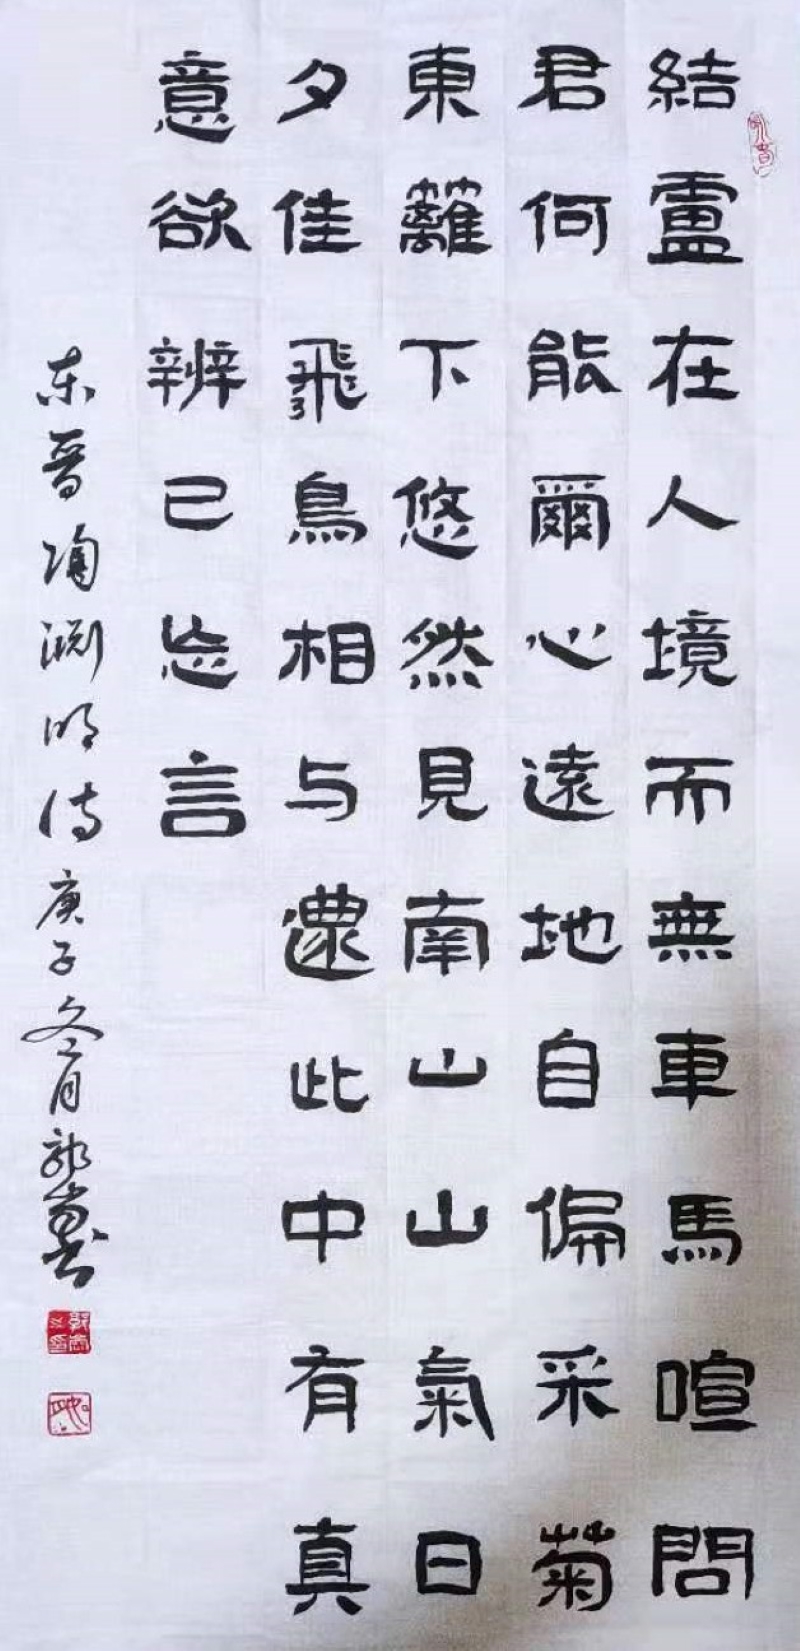 結盧在人境而無車馬喧問
君何能爾心遠地自偏采菊
東籬下悠然見南山山氣日
夕佳飛鳥相与還此中有真
意欲辨已忘言
东晋陶渊明诗庚子冬月